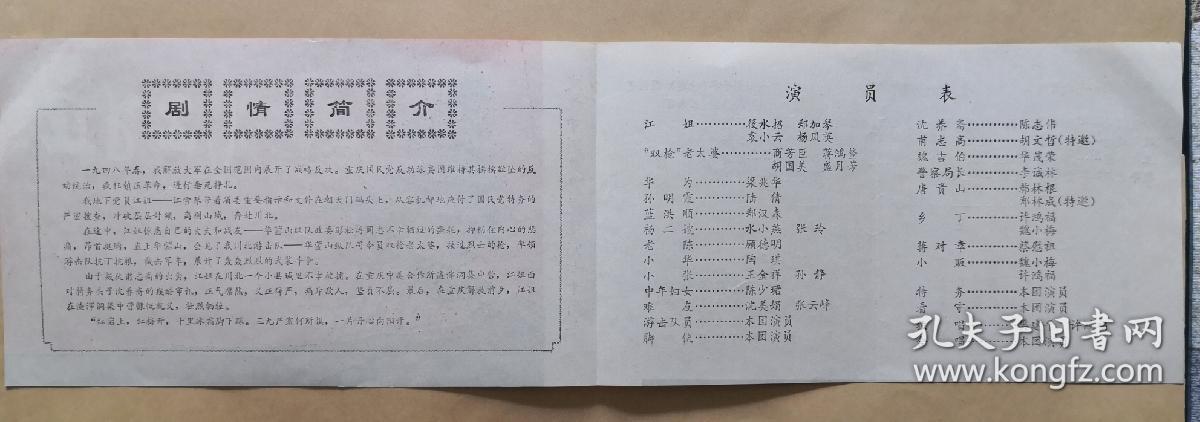 剧情简介
一九四八年春，我解放大军在全国范围内展开了战略反攻。重庆国民党反动派妄图维持其摇摇欲坠的反
动统治，疯狂镇压革命，进行垂死挣扎。
我地下党员江姐——江雪琴带着省委重要指示和文件在朝天门码头上，从容机智地应付了国民党特务的
严密搜查，冲破层层封锁，离别山城，奔赴川北。
在途中，江姐惊悉自己的丈夫和战友——华蓥山纵队政委彭松涛同志不幸牺牲的噩耗，抑制住内心的悲
痛，昂首挺胸，直上华蓥山，会见了我川北游击队——华蓥山纵队司令员双枪老太婆，接过烈士的枪，率领
游击队抗丁抗粮，截击军车，展开了轰轰烈烈的武装斗争。
由于叛徒甫志高的出卖，江姐在川北一个小县城里不幸被捕，在重庆中美合作所渣滓洞集中营，江姐面
对特务头子沈养斋的残酷审讯，正气凛然，义正辞严，痛斥敌人，坚贞不屈。最后，在重庆解放前夕，江姐
在渣滓洞集中营慷慨就义，壮烈牺牲。
“红岩上，红梅开，千里冰霜脚下踩。三九严寒何所惧，一片丹心向阳开。”
演员表
江姐…………筱水招 郑加琴
袁小云 杨凤英
“双枪”老太婆…………商芳臣 蒋鸿
胡国美 盛月芳
华为…………梁兆华
孙明霞…………陆倩
蓝洪顺…………郑汉泰
杨二嫂…………水小燕 张玲
老陈…………顾德明
小华…………陶琪
小张…………王金祥 孙静
中年妇女…………陈少珺
难友…………沈美娟 张云峰
游击队员…………本团演员
脚伕…………本团演员
沈养斋…………陈志伟
甫志高…………胡文哲(特邀)
魏吉伯…………华茂荣
警察局长…………李诚林
唐贵山…………郭林根
郑林成(特邀)
乡丁…………许鸿福
魏小梅
蒋对章…………蔡彪祖
小贩…………魏小梅
许鸿福
特务…………本团演员
看守…………本团演员
唱
唱…………本团演员
孔夫子旧书网
www.kongfz.com